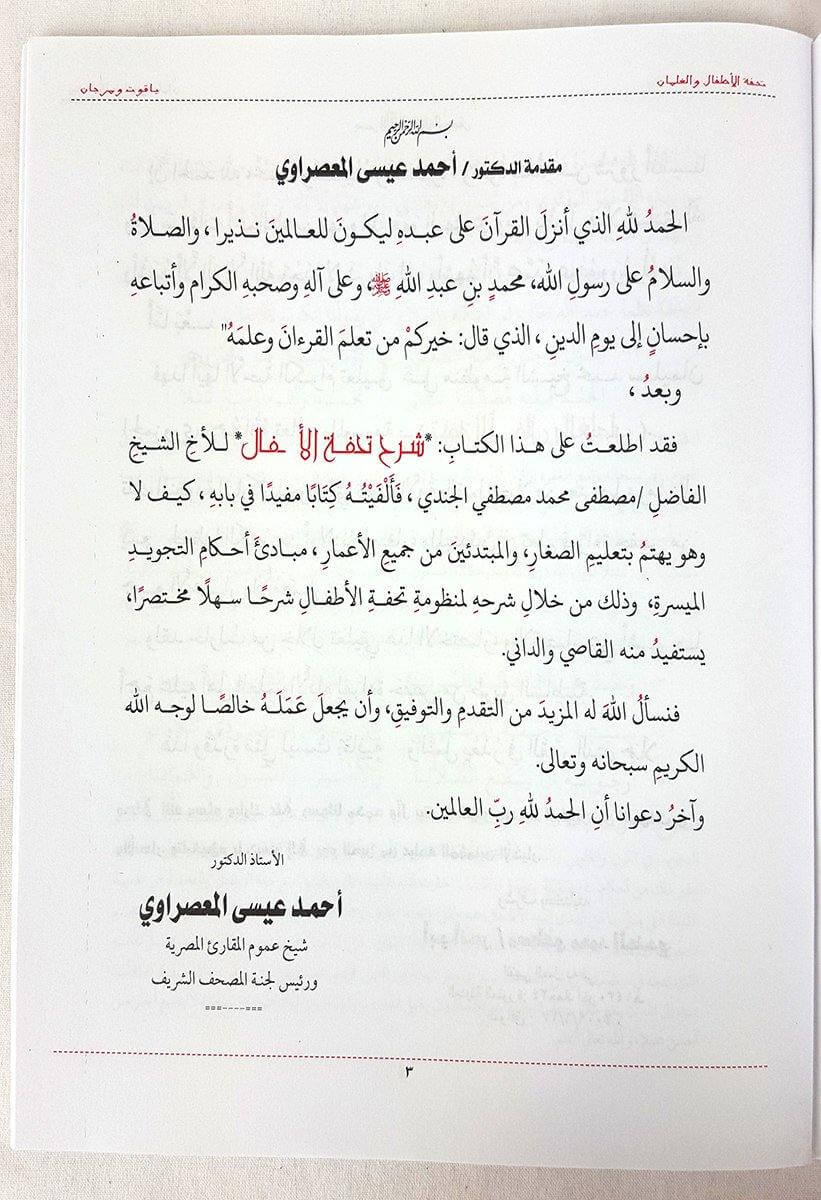 تحفة الأطفال والغلمان
ياقوت ومرجان
بسم الله الرحمن الرحيم
مقدمة الدكتور / أحمد عيسى المعصراوي
الحمدُ للهِ الذي أنزلَ القرآنَ على عبدهِ ليكونَ للعالمينَ نذيرا ، والصلاةُ
والسلامُ على رسولِ الله، محمدٍ بنِ عبدِ اللهِ ﷺ، وعلى آلهِ وصحبهِ الكرام وأتباعهِ
بإحسانٍ إلى يومِ الدينِ ، الذي قال: خيركمْ من تعلمَ القرءانَ وعلمَهُ"
وبعدُ ،
فقد اطلعتُ على هذا الكتابِ: *شرح تحفة الأ فال* للأخِ الشيخِ
الفاضلِ /مصطفى محمد مصطفي الجندي ، فَأَلْفَيْتُهُ كِتَابًا مفيدًا في بابهِ ، كيف لا
وهو يهتمُ بتعليمِ الصغارِ، والمبتدئينَ من جميعِ الأعمارِ ، مبادئَ أحكامِ التجويدِ
الميسرةِ، وذلك من خلالِ شرحهِ لمنظومةِ تحفةِ الأطفالِ شرحًا سهلًا مختصرًا،
يستفيدُ منه القاصي والداني.
فنسألُ اللهَ له المزيدَ من التقدمِ والتوفيقِ، وأن يجعلَ عَمَلَهُ خالصًا لوجه الله
الكريمِ سبحانه وتعالى.
وآخرُ دعوانا أنِ الحمدُ للهِ ربِّ العالمين.
الأستاذ الدكتور
أحمد عيسى المعصراوي
شيخ عموم المقارئ المصرية
ورئيس لجنة المصحف الشريف
===----===
٣